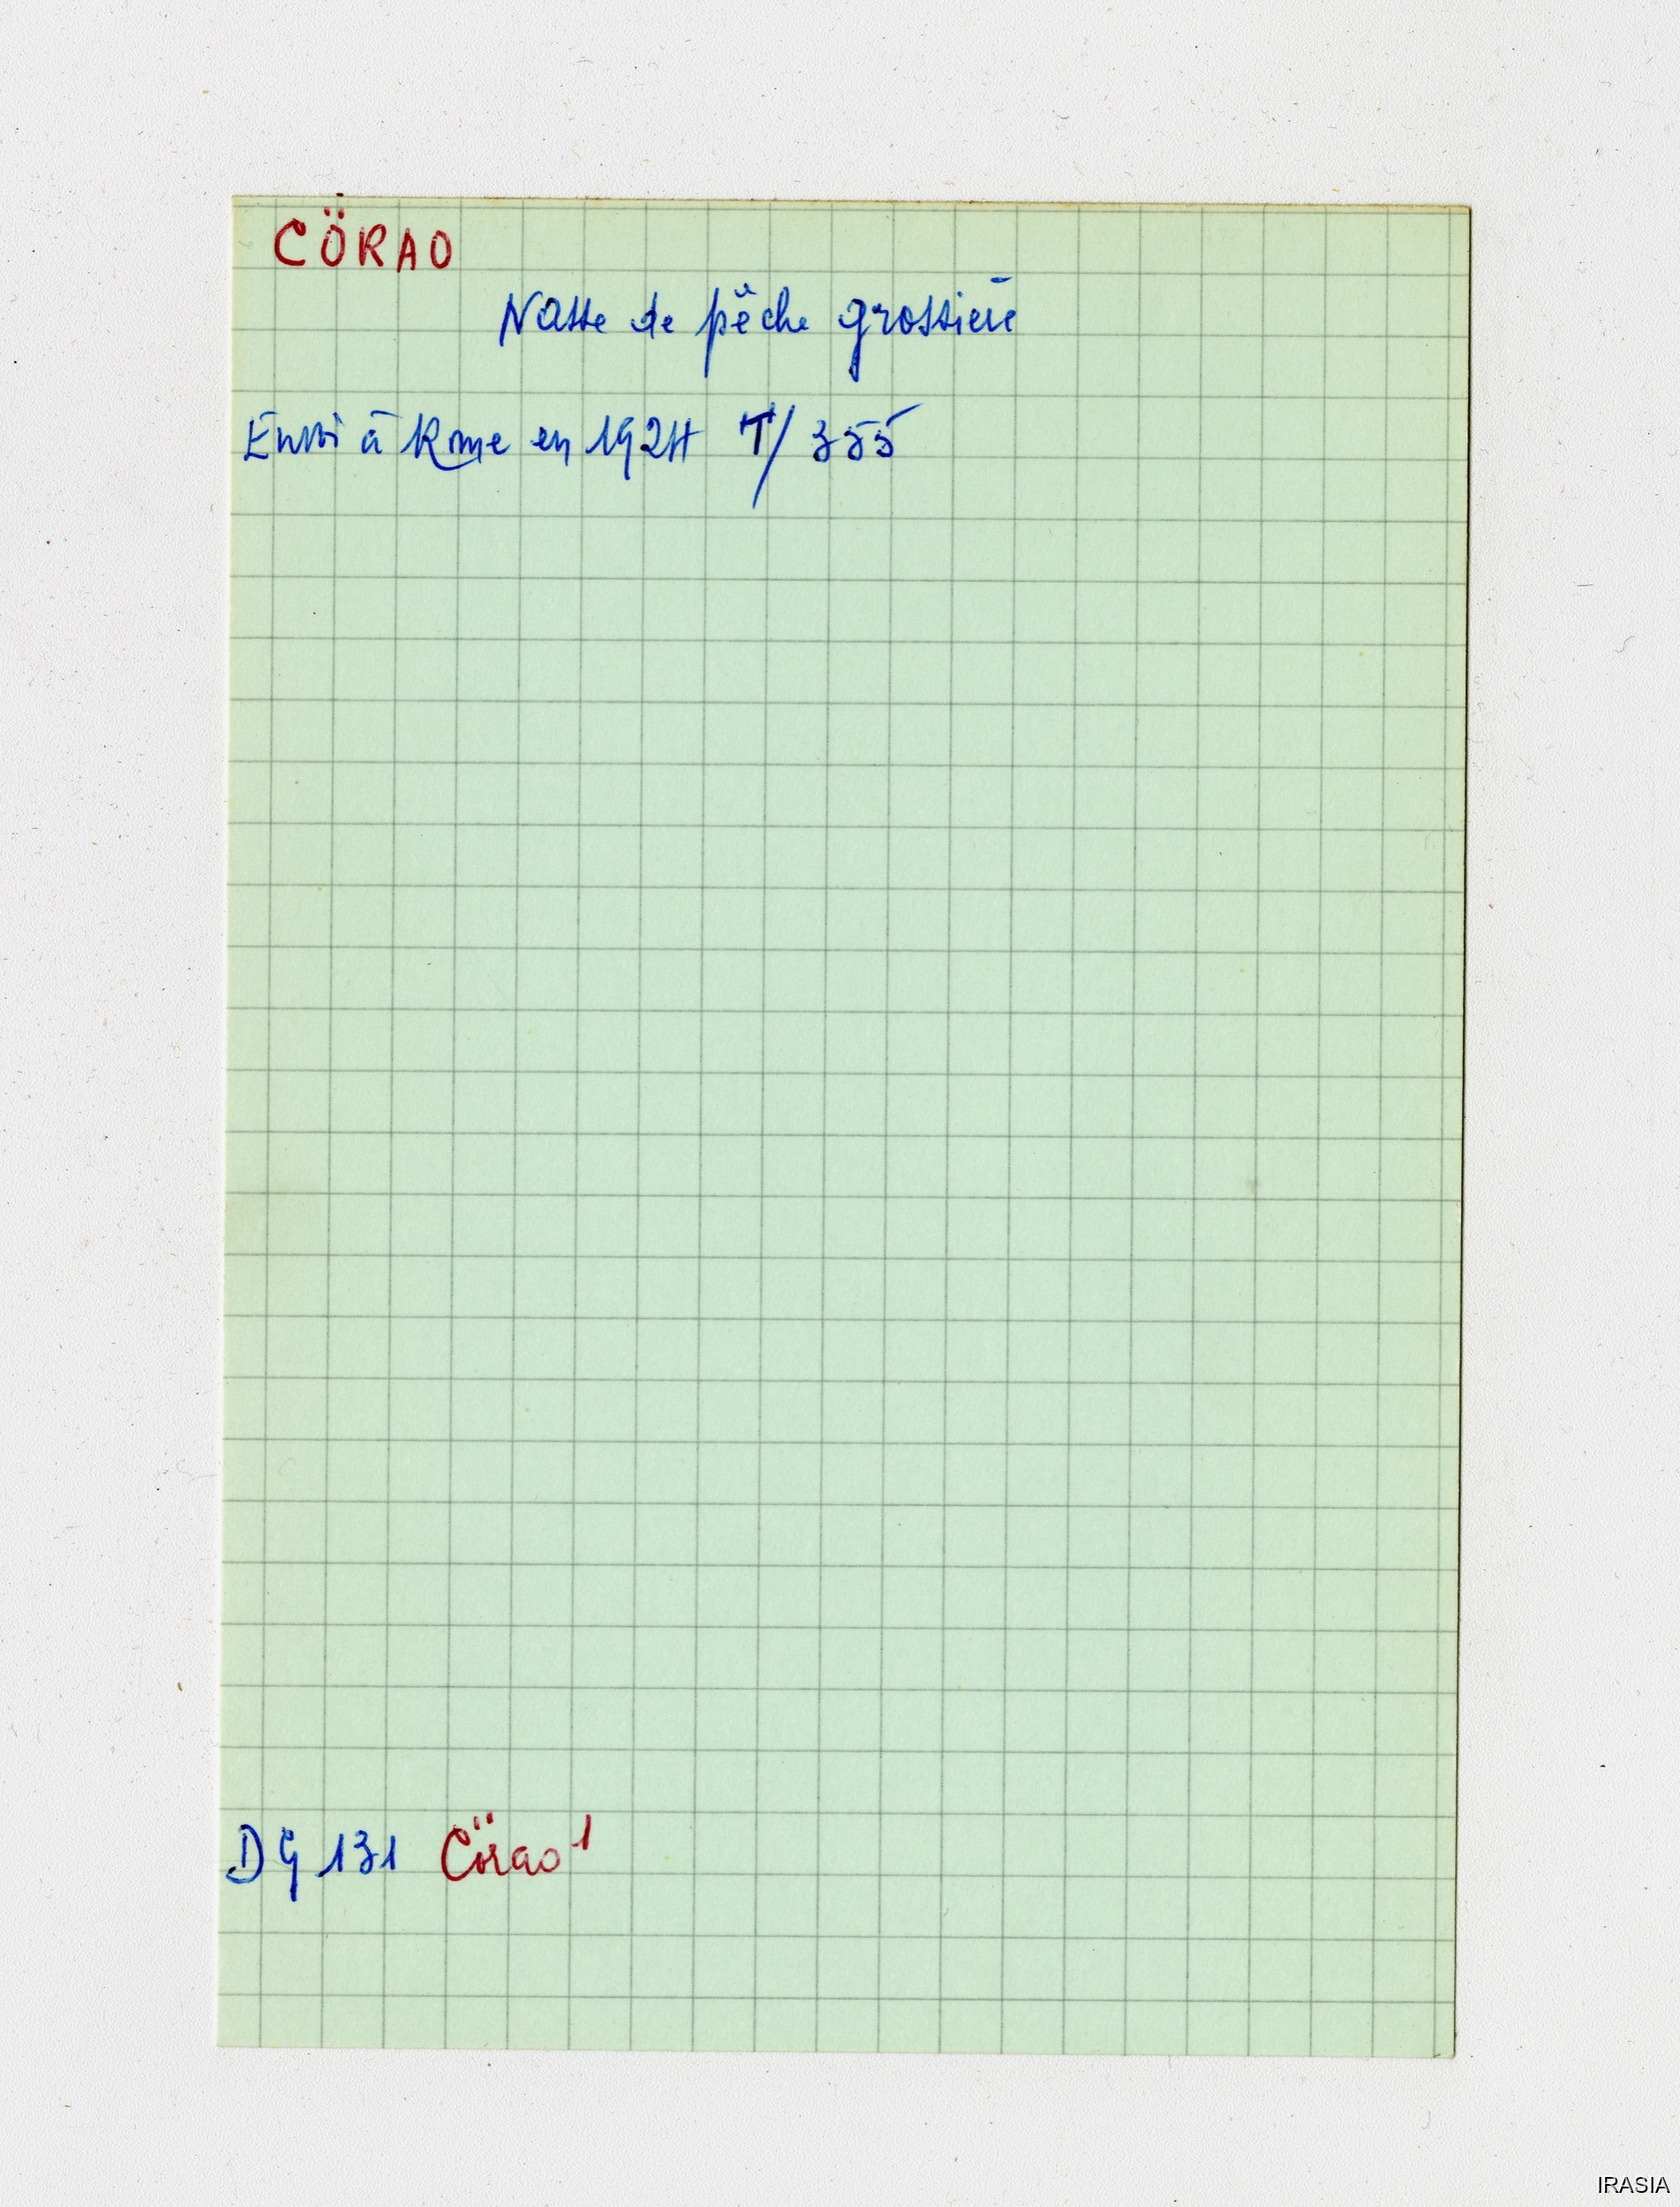 CÖRAO
Nasse de pêche grossière
Envoi à Rome en 1924 T/ 355
DG 131 Cörao 1
IRASIA